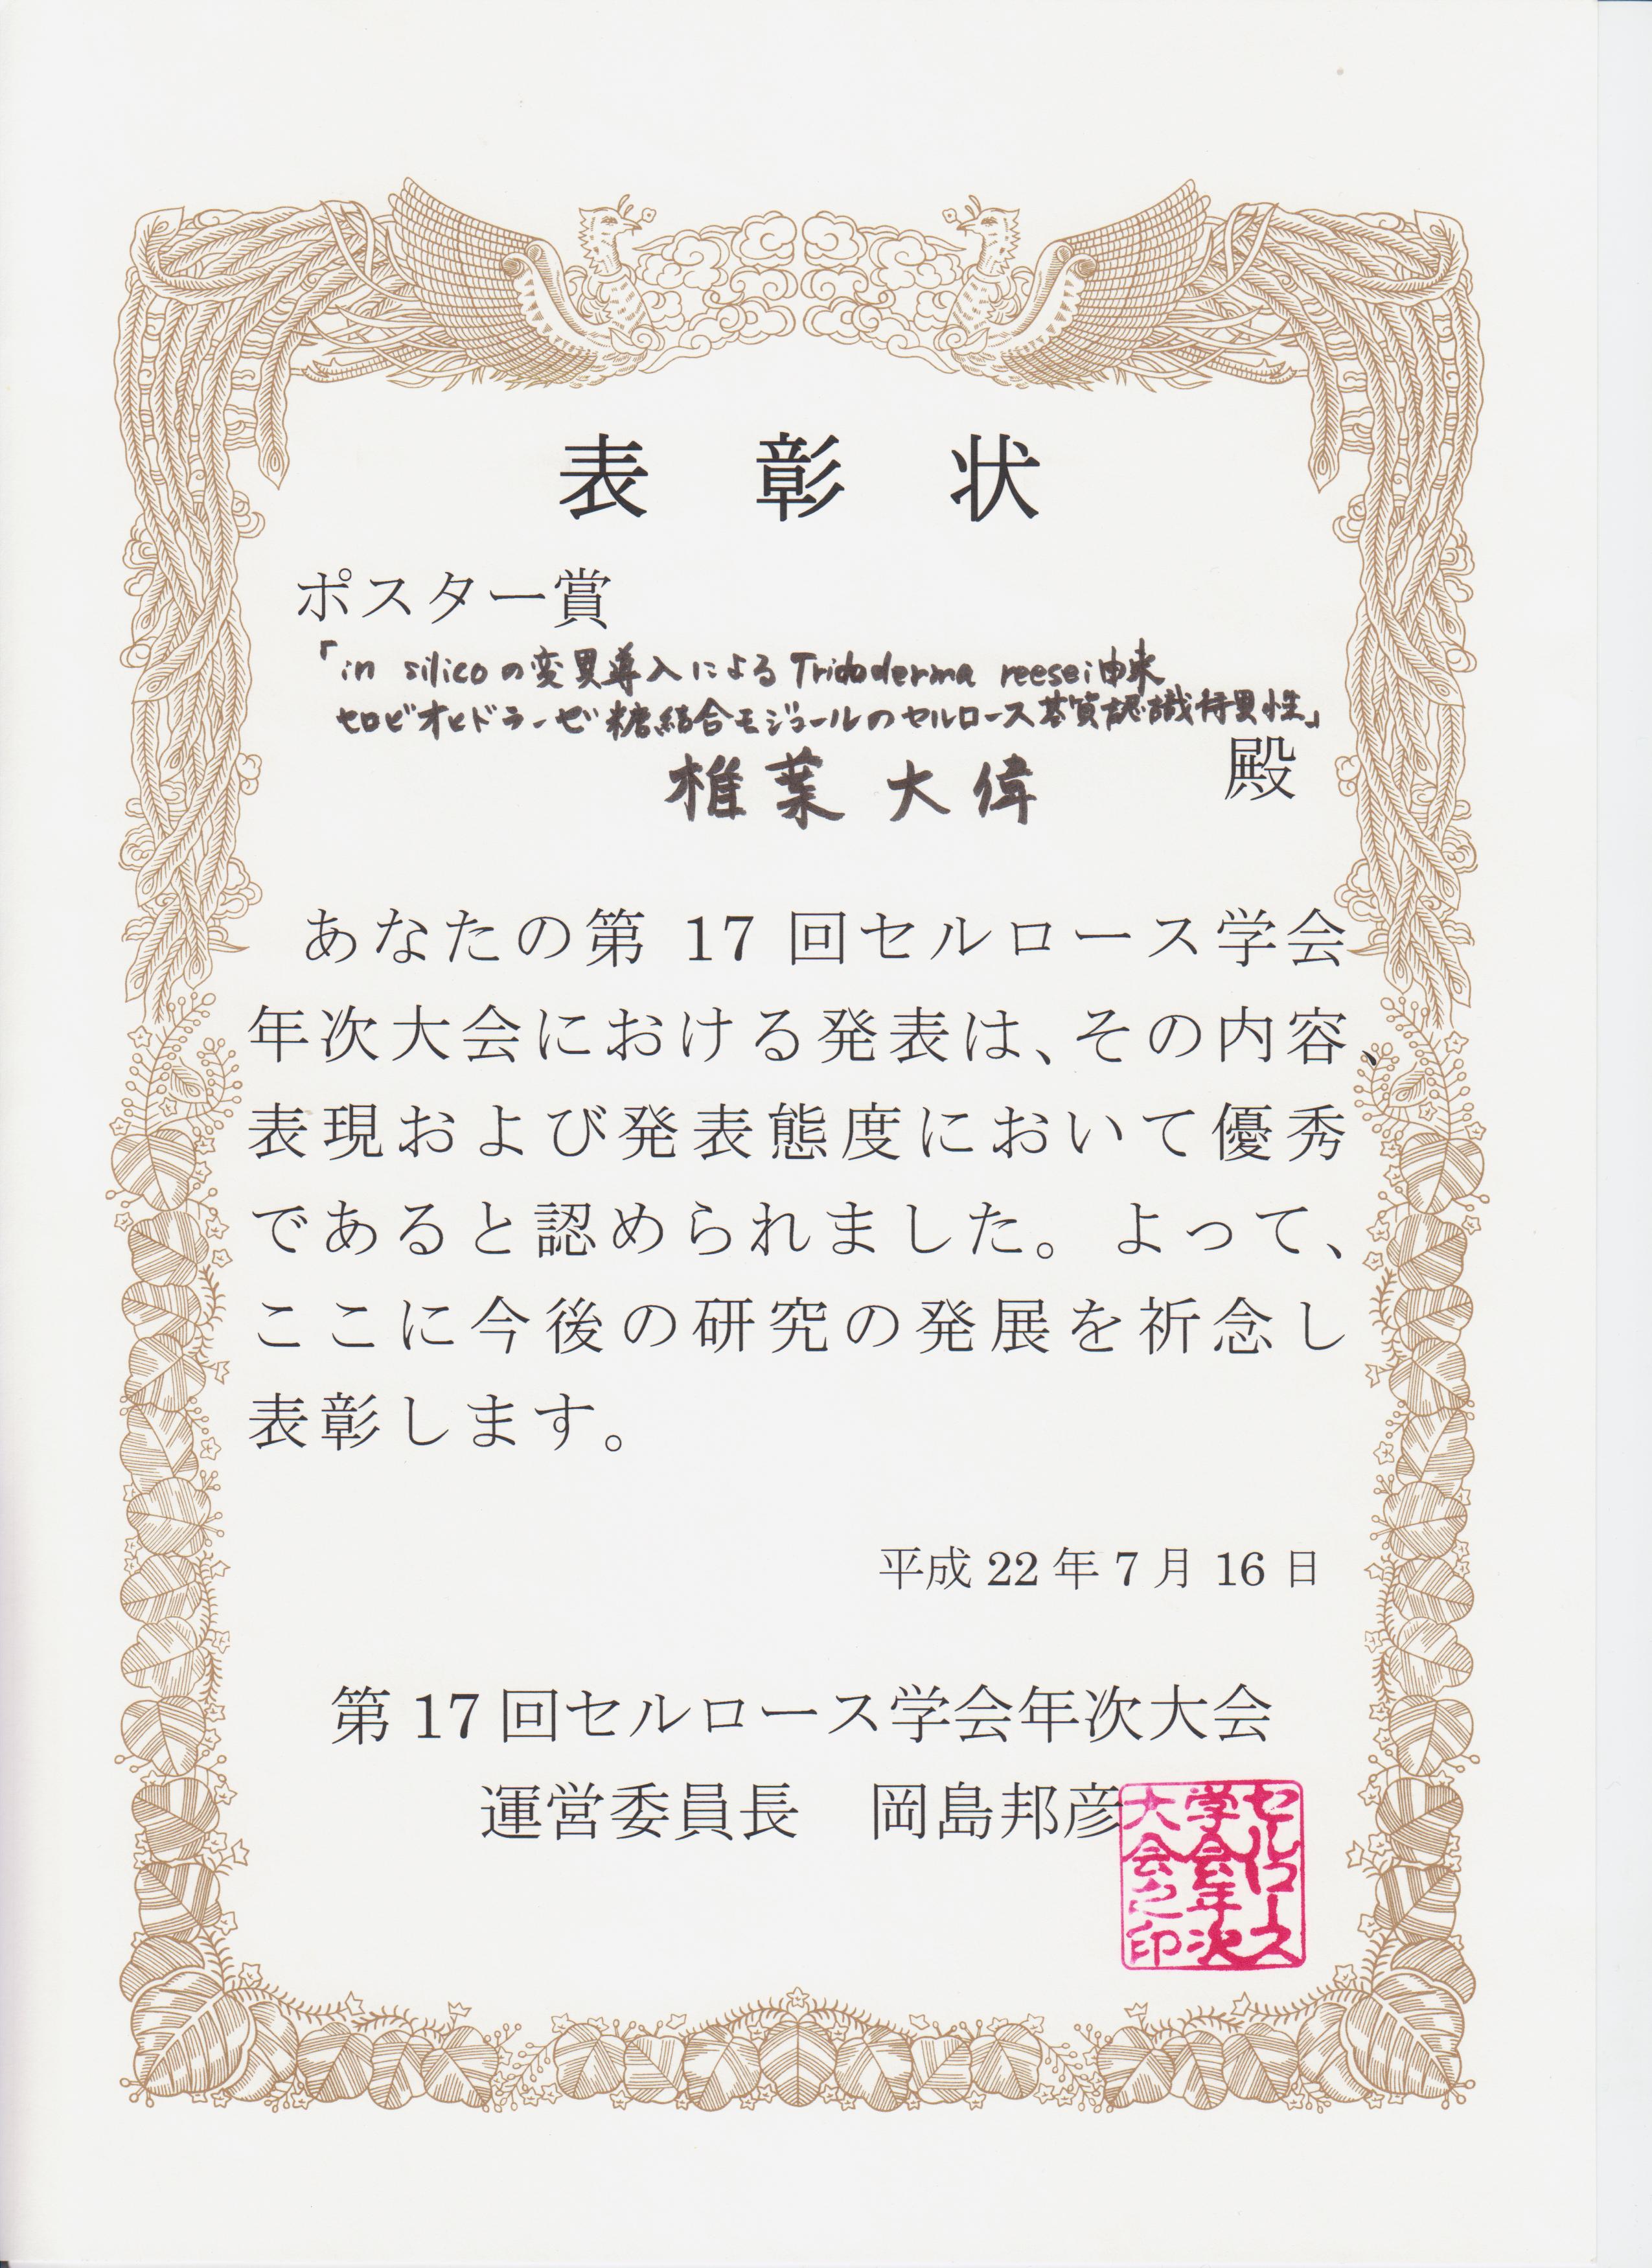 表彰状
ポスター賞
「in silicoの変異導入によるTridoderma reesei由来
セロビオヒドラーゼ糖結合モジュールのセルロース基質認識特異性」
椎葉大偉 殿
あなたの第 17 回セルロース学会
年次大会における発表は、その内容、
表現および発表態度において優秀
であると認められました。よって、
ここに今後の研究の発展を祈念し
表彰します。
平成 22 年 7 月 16 日
第 17 回セルロース学会年次大会
運営委員長　岡島邦彦
セルロース
学会年次
大会之印